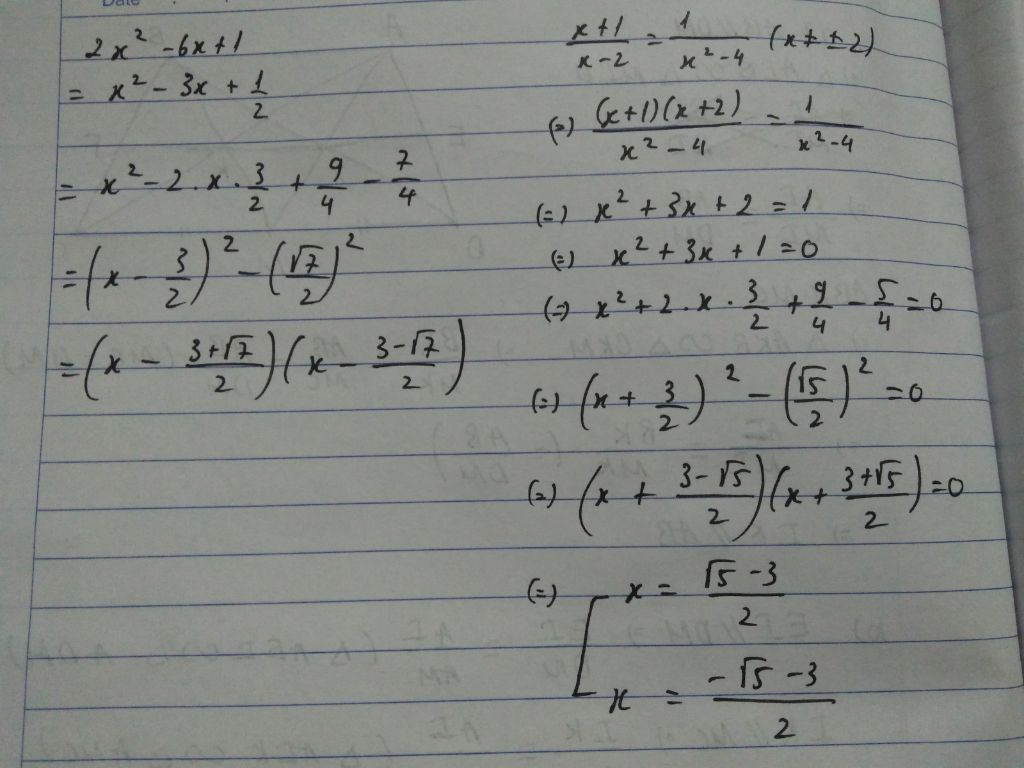 Date
2x² - 6x + 1
= x² - 3x + 1/2
= x² - 2.x.3/2 + 9/4 - 7/4
= (x - 3/2)² - (√7/2)²
= (x - (3+√7)/2)(x - (3-√7)/2)
(x+1)/(x-2) = 1/(x²-4) (x ≠ ±2)
(=) (x+1)(x+2)/(x²-4) = 1/(x²-4)
(=) x² + 3x + 2 = 1
(=) x² + 3x + 1 = 0
(=) x² + 2.x.3/2 + 9/4 - 5/4 = 0
(=) (x + 3/2)² - (√5/2)² = 0
(=) (x + (3-√5)/2)(x + (3+√5)/2) = 0
(=) [ x = (√5 - 3)/2
x = (-√5 - 3)/2